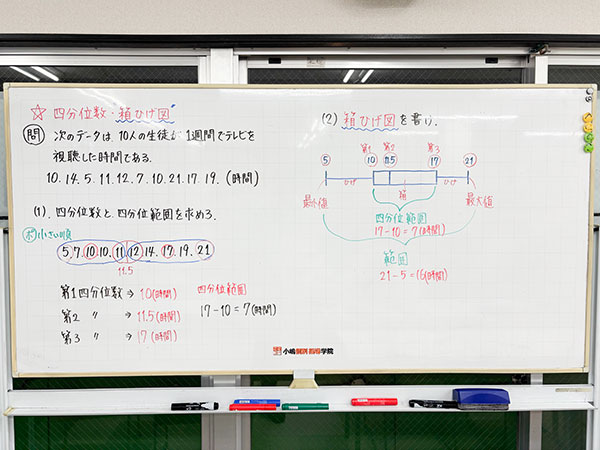 ☆ 四分位数・箱ひげ図
問 次のデータは、10人の生徒が1週間でテレビを
視聴した時間である。
10. 14. 5. 11. 12. 7. 10. 21. 17. 19. (時間)
(1). 四分位数と四分位範囲を求めろ.
ポ 小さい順
5. 7. 10. 10. 11. 12. 14. 17. 19. 21
11.5
第1四分位数 ⇒ 10(時間)
第2 〃 ⇒ 11.5(時間)
第3 〃 ⇒ 17(時間)
四分位範囲
17-10=7(時間)
(2) 箱ひげ図を書け.
第1 第2 第3
5 10 11.5 17 21
ひげ 箱 ひげ
最小値 最大値
四分位範囲
17-10=7(時間)
範囲
21-5=16(時間)
小嶋個別指導学院